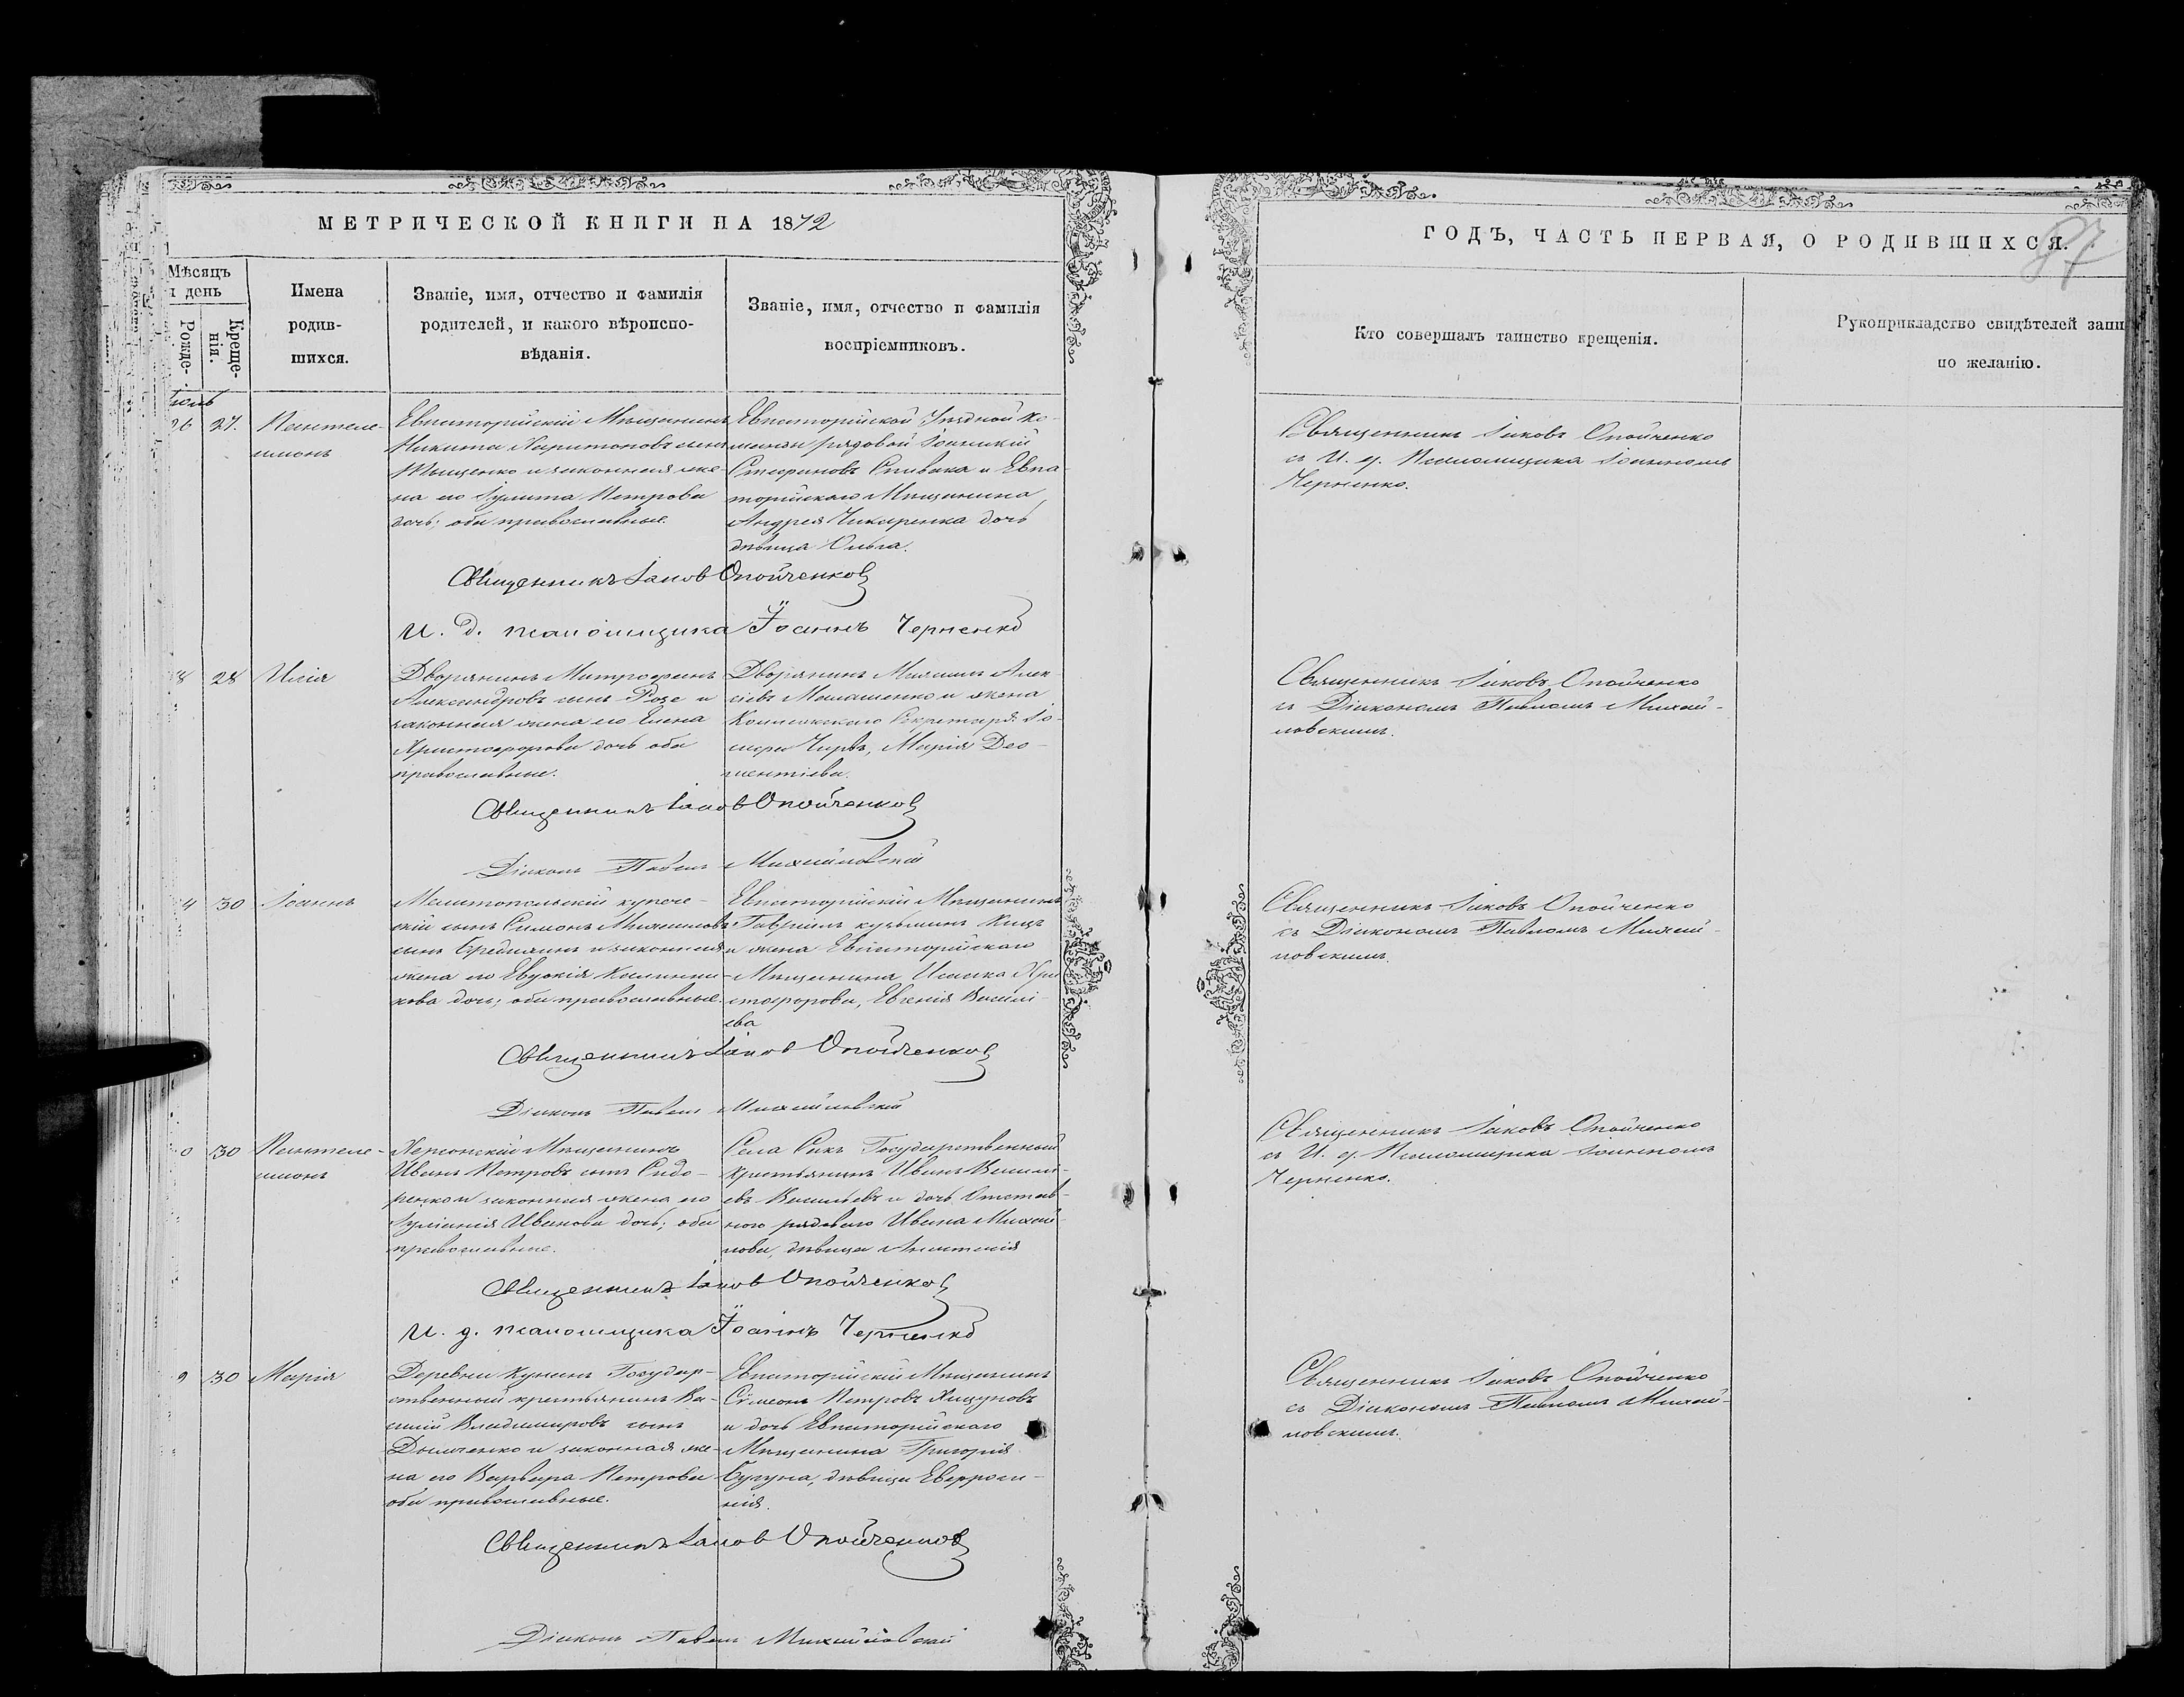 МЕТРИЧЕСКОЙ КНИГИ НА 1872
ГОДЪ, ЧАСТЬ ПЕРВАЯ, О РОДИВШИХСЯ.
97
Мѣсяцъ
и день
Рожде-
Креще-
нія.
Имена
родив-
шихся.
Званіе, имя, отчество и фамилія
родителей, и какого вѣроиспо-
вѣданія.
Званіе, имя, отчество и фамилія
воспріемниковъ.
Кто совершалъ таинство крещенія.
Рукоприкладство свидѣтелей запи
по желанію.
26 27. Пантеле-
имонъ
Евпаторійскій Мѣщанинъ
Никита Харитоновъ сынъ
Тищенко и законная же-
на его Іулита Петрова
дочь; оба православные.
Евпаторійской Уѣздной ко-
манды рядовой
Стефановъ Спивака и Евпа-
торійскаго Мѣщанина
Андрея Чикаренка дочь
дѣвица Ольга.
Священникъ Іаковъ Опойченко
съ И. д. Псаломщика Іоанномъ
Черненко.
Священникъ Іаковъ Опойченко
И. д. псаломщика Іоаннъ Черненко
8 28 Илія
Дворянинъ Митрофанъ
Александровъ сынъ Розе и
законная жена его Елена
Христофорова дочь оба
православные.
Дворянинъ Михаилъ Алек
сѣевъ и жена
Коллежскаго Секретаря
Марія
Священникъ Іаковъ Опойченко
съ Діакономъ Павломъ Михай-
ловскимъ.
Священникъ Іаковъ Опойченко
Діаконъ Павелъ Михайловскій
4 30 Іоаннъ
Мелитопольскій купече-
скій сынъ Симонъ Михаиловъ
сынъ и законная
жена его Евдокія
кова дочь; оба православные.
Евпаторійскій Мѣщанинъ
Гавріилъ Кузьминъ
и жена Евпаторійскаго
Мѣщанина, Исаака Хри
стофорова, Евгенія Василі-
ева
Священникъ Іаковъ Опойченко
съ Діакономъ Павломъ Михай-
ловскимъ.
Священникъ Іаковъ Опойченко
Діаконъ Павелъ Михайловскій
0 30 Пантеле-
имонъ
Херсонскій Мѣщанинъ
Иванъ Петровъ сынъ Сидо-
ренко и законная жена его
Іуліанія Иванова дочь; оба
православные.
Села Сакъ Государственный
крестьянинъ Иванъ Василі-
евъ Васильевъ и дочь Отстав-
ного рядового Ивана Михай-
лова, дѣвица Анастасія
Священникъ Іаковъ Опойченко
съ И. д. Псаломщика Іоанномъ
Черненко.
Священникъ Іаковъ Опойченко
И. д. псаломщика Іоаннъ Черненко
9 30 Марія
Деревни Кунанъ Государ-
ственный крестьянинъ Ва-
силій Владимировъ сынъ
Демченко и законная же-
на его Варвара Петрова
оба православные.
Евпаторійскій Мѣщанинъ
Симеонъ Петровъ
и дочь Евпаторійскаго
Мѣщанина Григорія
дѣвица Евфроси-
нія.
Священникъ Іаковъ Опойченко
съ Діакономъ Павломъ Михай-
ловскимъ.
Священникъ Іаковъ Опойченко
Діаконъ Павелъ Михайловскій